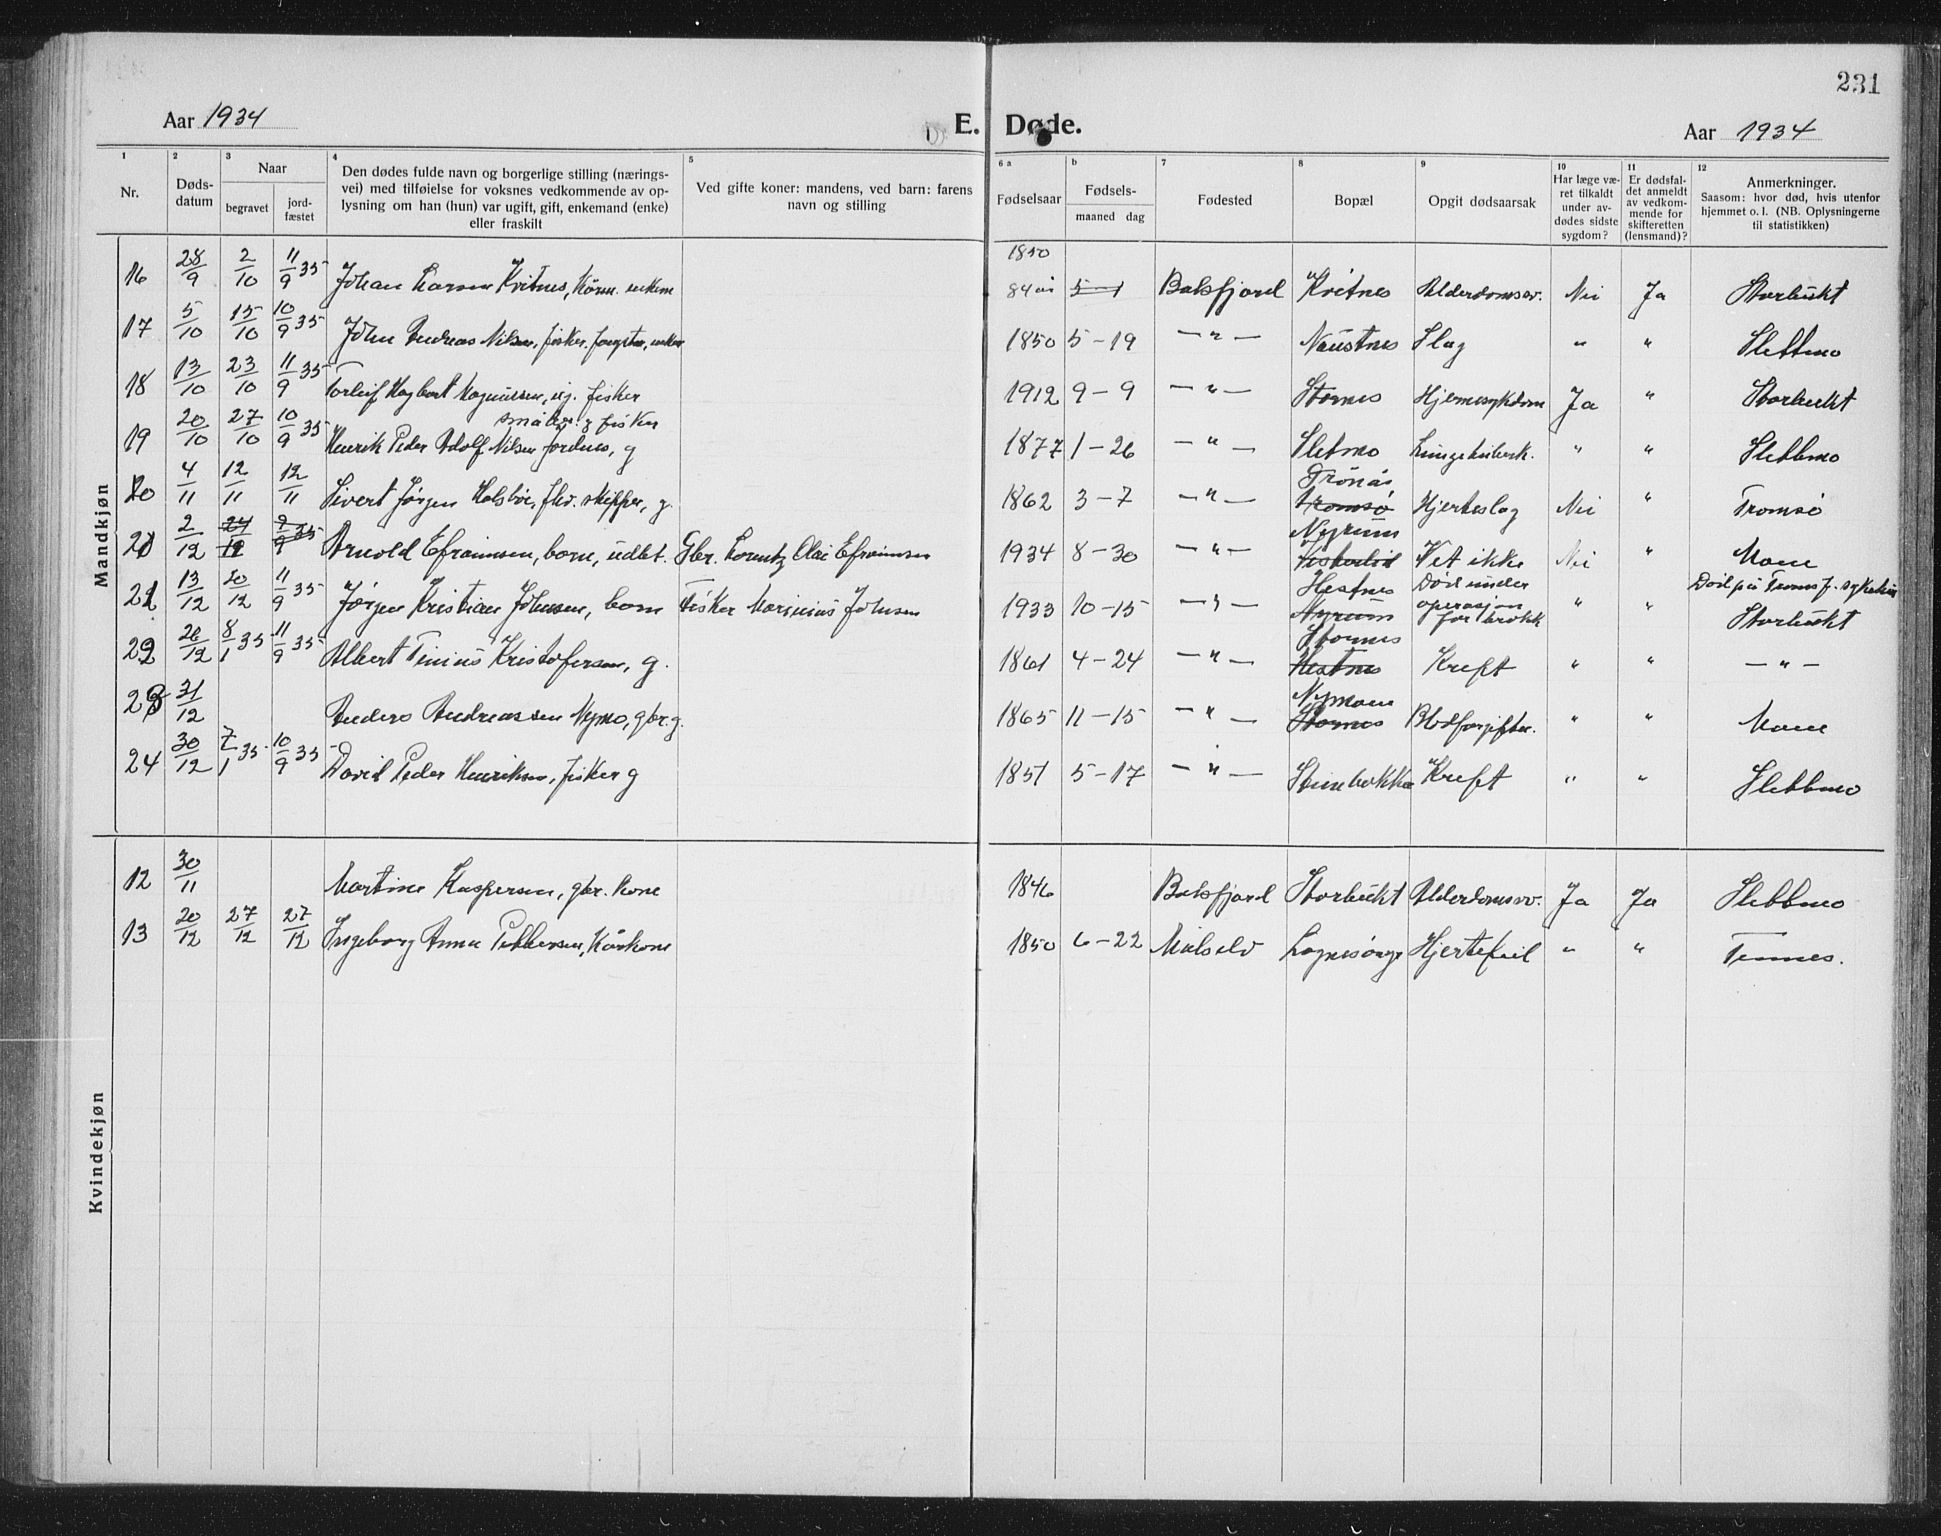 231
Aar 1934
E. Døde.
Aar 1934
1 2 3 4 5 6 a b 7 8 9 10 11 12
Nr.
Døds-
datum
Naar
begravet
jord-
fæstet
Den dødes fulde navn og borgerlige stilling (nærings-
vei) med tilføielse for voksnes vedkommende av op-
lysning om han (hun) var ugift, gift, enkemand (enke)
eller fraskilt
Ved gifte koner: mandens, ved barn: farens
navn og stilling
Fødselsaar
Fødsels-
maaned dag
Fødested
Bopæl
Opgit dødsaarsak
Har læge væ-
ret tilkaldt
under av-
dødes sidste
sygdom?
Er dødsfal-
det anmeldt
av vedkom-
mende for
skifteretten
(lensmand)?
Anmerkninger.
Saasom: hvor død, hvis utenfor
hjemmet o. l. (NB. Oplysningerne
til statistikken)
Mandkjøn
1850
16 28/9 2/10 11/9 35 Johan Larsen Kvitnes, 84 år 5 1 Balsfjord Kvitnes Alderdomssv. Nei Ja Storbukt
17 5/10 15/10 10/9 35 John Andreas Nilsen, fisker, 1850 5-19 -"- Naustnes Slag " " Slettmo
18 13/10 23/10 11/9 35 Torleif Hagbart Magnussen, ug. fisker 1912 9-9 -"- Stornes Hjernesykdom Ja " Storbukt
småbr. g fisker
19 20/10 27/10 10/9 35 Henrik Peder Adolf Nilsen Jordnes, g 1877 1-26 -"- Sletmo Lungetuberk. " " Slettmo
Trönås
20 4/11 12/11 12/11 Sivert Jørgen Holsbøe, fhv. skipper, g. 1862 3-7 -"- Tromsö Hjerteslag Nei " Tromsö
Nyrum
21 2/12 24/12 9/9 35 Arnold Efraimsen, barn, udbt. Gbr. Lorentz Olai Efraimsen 1934 8-30 -"- Vet ikke Nei " Moen
Hestnes Död under Död på Tromsf. sykehus
22 13/12 20/12 11/9 35 Jørgen Kristian Johnsen, barn Fisker Marinius Johnsen 1933 10-15 -"- Nyrum operasjon for brokk " " Storbukt
Stornes
22 26/12 8/1 35 11/9 35 Albert Tinius Kristofersen, g. 1861 4-24 -"- Hestnes Kreft " " -"-
Nymoen
23 31/12 Anders Andreassen Nymo, gbr. g. 1865 11-15 -"- Stornes Blodforgiftn. " " Moen
24 30/12 7/1 35 10/9 35 David Peder Henriksen, fisker g 1851 5-17 -"- Kreft " " Slettmo
Kvindekjøn
12 30/11 Martine Kaspersen, gbr. kone 1846 Balsfjord Storbukt Alderdomssv. Ja Ja Slettmo
13 20/12 27/12 27/12 Ingeborg Anna Pettersen, Kårkone 1850 6-22 Målselv Hjertefeil " " Tennes.